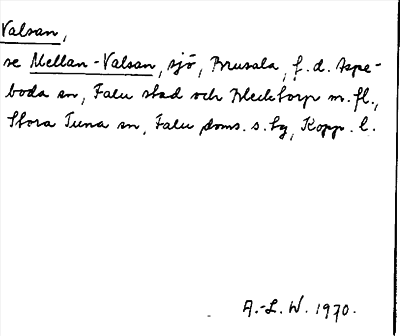 Valsan,
se Mellan-Valsan, sjö, Brusala, f.d. Aspe-
boda sn, Falu stad och Blecktorp m.fl.,
Stora Tuna sn, Falu doms. s. tg, Kopp. l.
A.-L. W. 1970.